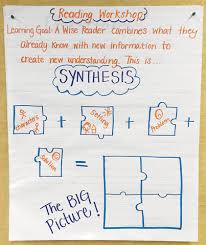 Reading Workshop
Learning Goal: A Wise Reader combines what they
already know with new information to
create new understanding. This is...
SYNTHESIS
Characters + Setting + Problem +
Solution =
The BIG
Picture!